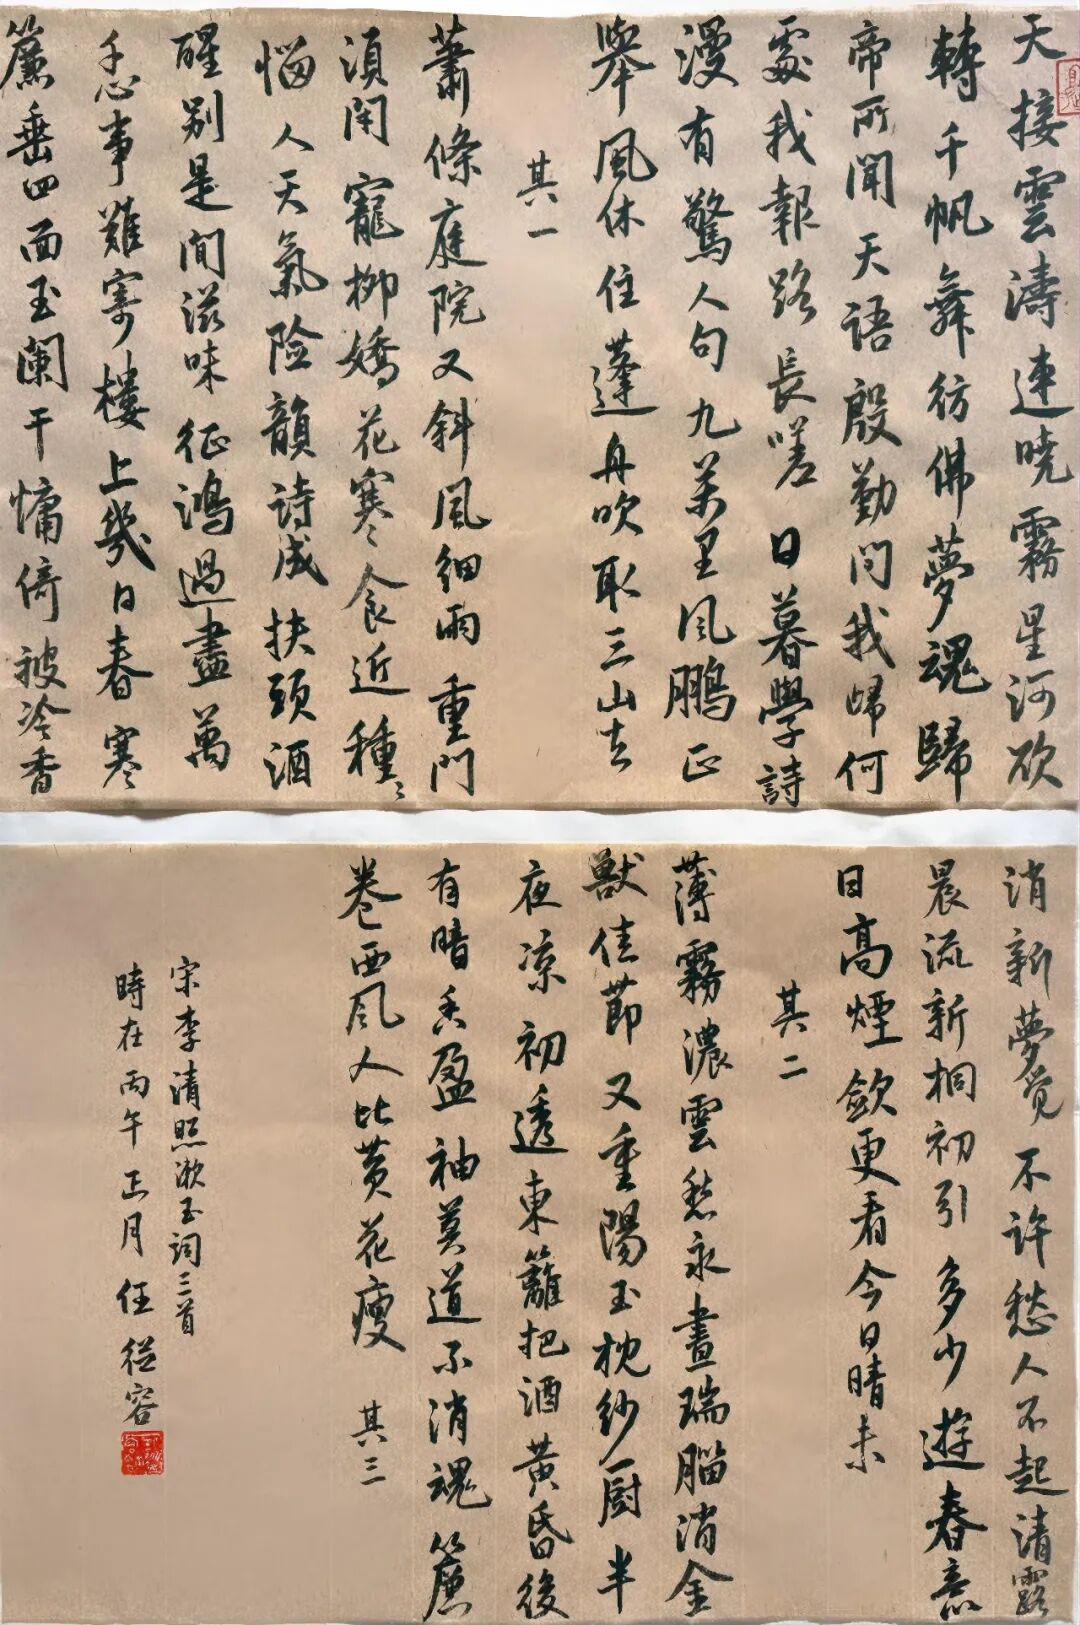 天接雲濤連曉霧星河欲
轉千帆舞彷佛夢魂歸
帝所聞天語殷勤問我歸何
處我報路長嗟日暮學詩
漫有驚人句九萬里風鵬正
舉風休住蓬舟吹取三山去
其一
蕭條庭院又斜風細雨重門
須閉寵柳嬌花寒食近種〻
惱人天氣险韻詩成扶頭酒
醒别是閒滋味征鴻過盡萬
千心事難寄樓上幾日春寒
簾垂四面玉闌干慵倚被冷香
消新夢觉不许愁人不起清露
晨流新桐初引多少遊春意
日高煙斂更看今日晴未
其二
薄霧濃雲愁永晝瑞腦消金
獸佳節又重陽玉枕紗厨半
夜凉初透東籬把酒黄昏後
有暗香盈袖莫道不消魂簾
卷西风人比黄花瘦 其三
宋李清照漱玉词三首
時在丙午正月任從容